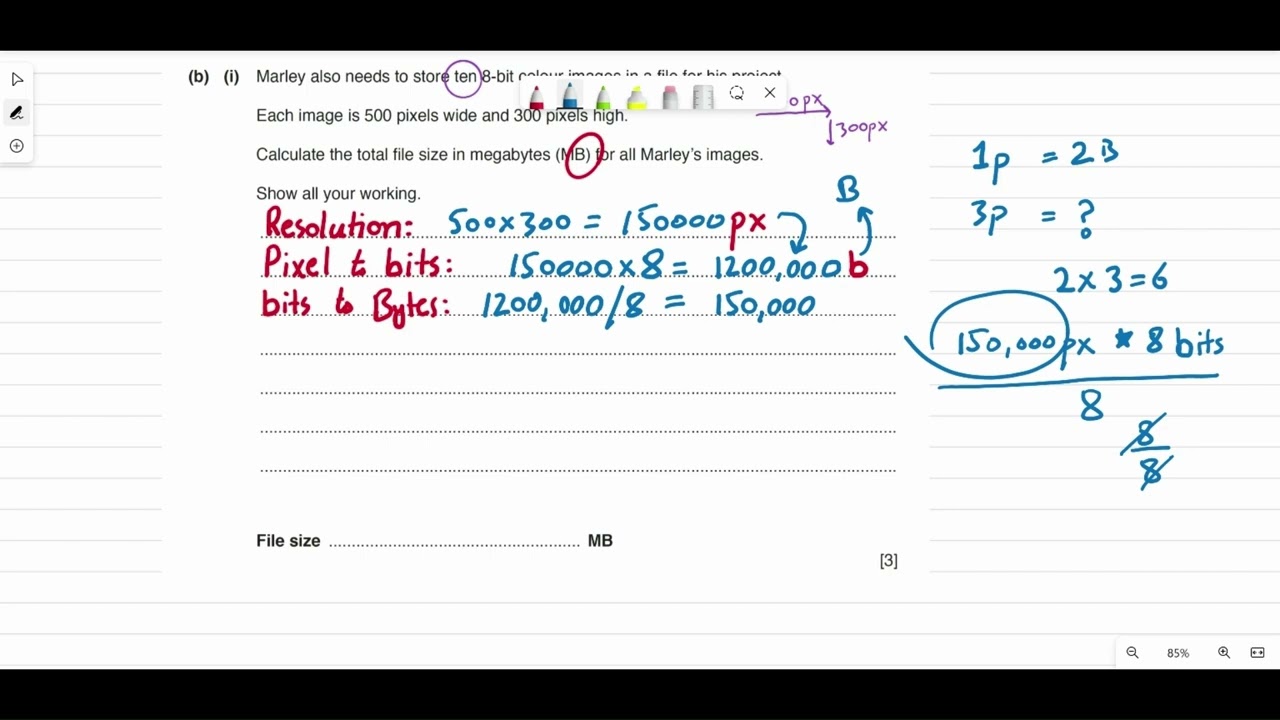 (b) (i) Marley also needs to store ten 8-bit colour images in a file for his project.
Each image is 500 pixels wide and 300 pixels high.
0px
300px
Calculate the total file size in megabytes (MB) for all Marley's images.
Show all your working.
B
Resolution: 500x300 = 150000px
Pixel to bits: 150000x8 = 1200,000b
bits to Bytes: 1200,000/8 = 150,000
File size ........................................ MB
[3]
1p = 2B
3p = ?
2 x 3 = 6
150,000px * 8 bits
8
8
8
85%